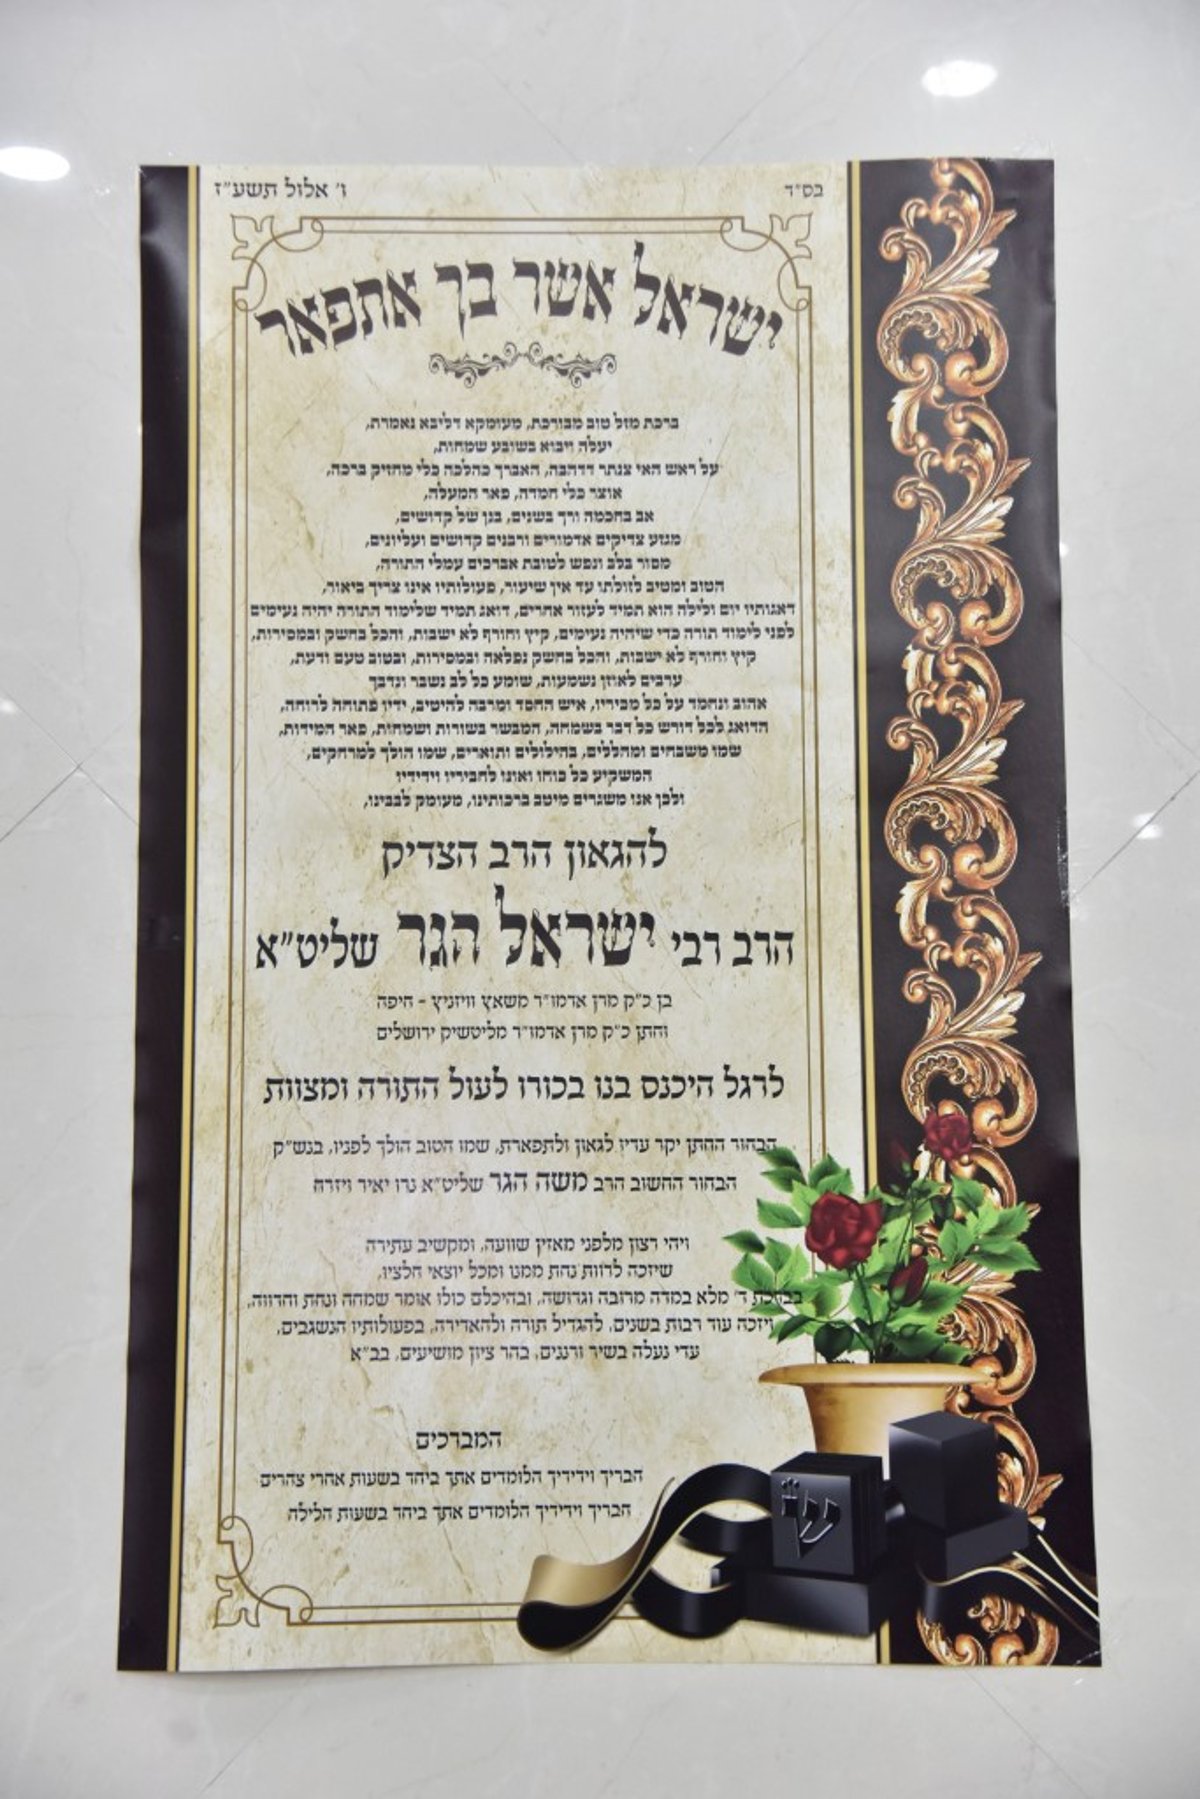 בס״ד
ו׳ אלול תשע״ז
ישראל אשר בך אתפאר
ברכת מזל טוב מבורכת, מעומקא דליבא נאמרת,
יעלה ויבוא בשובע שמחות,
על ראש האי צנתר דדהבה, האברך כהלכה כלי מחזיק ברכה,
אוצר כלי חמדה, פאר המעלה,
אב בחכמה ורך בשנים, בנן של קדושים,
מגזע צדיקים אדמורים ורבנים קדושים ועליונים,
מסור בלב ונפש לטובת אברכים עמלי התורה,
הטוב ומטיב לזולתו עד אין שיעור, פעולותיו אינו צריך ביאור,
דאגותיו יום ולילה הוא תמיד לעזור אחרים, דואג תמיד שלימוד התורה יהיה נעימים
לפני לימוד תורה כדי שיהיה נעימים, קיץ וחורף לא ישבות, והכל בחשק ובמסירות,
קיץ וחורף לא ישבות, והכל בחשק נפלאה ובמסירות, ובטוב טעם ודעת,
ערבים לאוזן נשמעות, שומע כל לב נשבר ונדכך
אהוב ונחמד על כל מכיריו, איש החסד ומרבה להיטיב, ידיו פתוחה לרוחה,
הדואג לכל דורש כל דבר בשמחה, המבשר בשורות ושמחות, פאר המידות,
שמו משבחים ומהללים, בהילולים ותוארים, שמו הולך למרחקים,
המשקיע כל כוחו ואונו לחביריו וידידיו
ולכן אנו משגרים מיטב ברכותינו, מעומק לבבינו,
להגאון הרב הצדיק
הרב רבי ישראל הגר שליט״א
בן כ״ק מרן אדמו״ר משאץ וויזניץ - חיפה
וחתן כ״ק מרן אדמו״ר מליטשיק ירושלים
לרגל היכנס בנו בכורו לעול התורה ומצוות
הבחור החתן יקר עדיו לגאון ולתפארת, שמו הטוב הולך לפניו, בנש״ק
הבחור החשוב הרב משה הגר שליט״א נרו יאיר ויזרח
ויהי רצון מלפני מאזין שוועה, ומקשיב עתירה
שיזכה לרוות נחת ממנו ומכל יוצאי חלציו,
בברכת ד׳ מלא במדה מרובה וגדושה, ובהיכלם כולו אומר שמחה ונחת וחדווה,
ויזכה עוד רבות בשנים, להגדיל תורה ולהאדירה, בפעולותיו הנשגבים,
עדי נעלה בשיר ורננים, בהר ציון מושיעים, בב״א
המברכים
חבריך וידידיך הלומדים אתך ביחד בשעות אחרי צהרים
חבריך וידידיך הלומדים אתך ביחד בשעות הלילה
ש